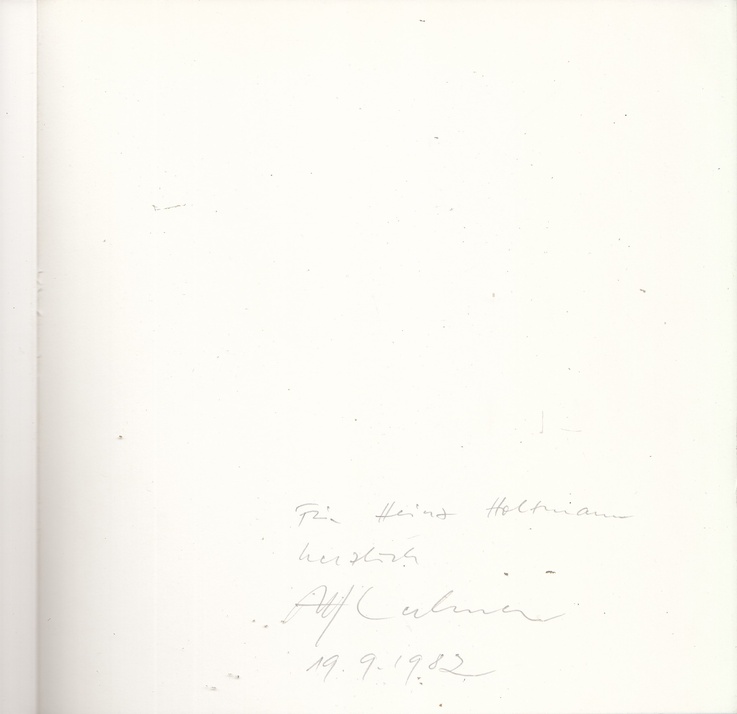 Für Heinz Holtmann
herzlich
Alf Lechner
19.9.1982